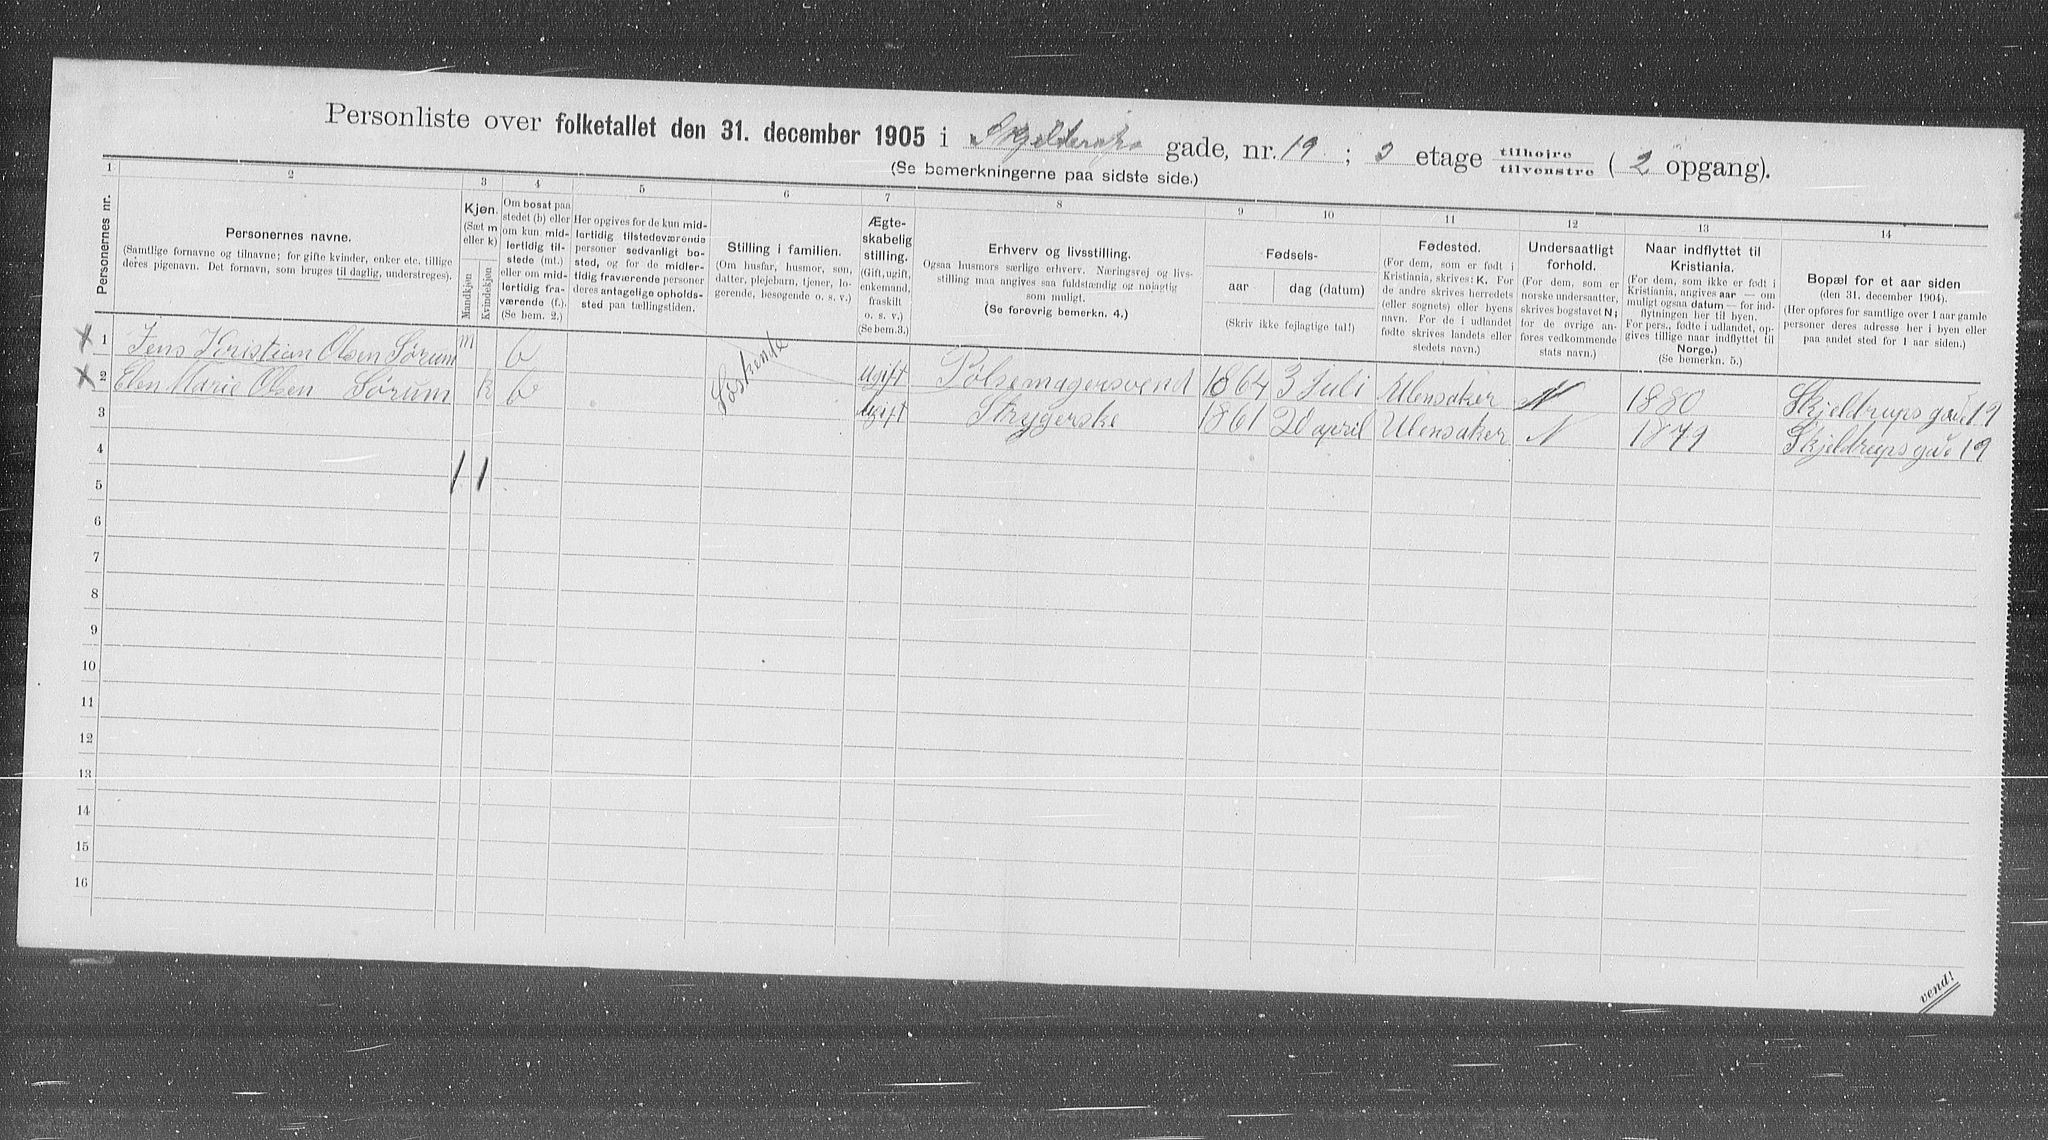 Personliste over folketallet den 31. december 1905 i Skjelderups gade, nr. 19 ; 3 etage tilhøire tilvenstre ( 2 opgang).
(Se bemerkningerne paa sidste side.)
1 2 3 4 5 6 7 8 9 10 11 12 13 14
Personernes nr.
Personernes navne.
(Samtlige fornavne og tilnavne; for gifte kvinder, enker etc. tillige
deres pigenavn. Det fornavn, som bruges til daglig, understreges).
Kjøn.
(Sæt m
eller k)
Mandkjøn
Kvindekjøn
Om bosat paa
stedet (b) eller
om kun mid-
lertidig til-
stede (mt.)
eller om mid-
lertidig fra-
værende (f.).
(Se bem. 2.)
Her opgives for de kun mid-
lertidig tilstedeværende
personer sedvanligt bo-
sted, og for de midler-
tidig fraværende personer
deres antagelige opholds-
sted paa tællingstiden.
Stilling i familien.
(Om husfar, husmor, søn,
datter, plejebarn, tjener, lo-
gerende, besøgende o. s. v.)
Ægte-
skabelig
stilling.
(Gift, ugift,
enkemand,
fraskilt
o. s. v.)
(Se bem. 3.)
Erhverv og livsstilling.
Ogsaa husmors særlige erhverv. Næringsvej og livs-
stilling maa angives saa fuldstændig og nøjagtig
som muligt.
(Se forøvrig bemerkn. 4.)
Fødsels-
aar dag (datum)
(Skriv ikke fejlagtige tal!)
Fødested.
(For dem, som er født i
Kristiania, skrives: K. For
de andre skrives herredets
(eller sognets) eller byens
navn. For de i udlandet
fødte skrives landets eller
stedets navn.)
Undersaatligt
forhold.
(For dem, som er
norske undersaatter,
skrives bogstavet N;
for de øvrige an-
føres vedkommende
stats navn.)
Naar indflyttet til
Kristiania.
(For dem, som ikke er født i
Kristiania, angives aar — om
muligt ogsaa datum — for ind-
flytningen her til byen.
For pers., fødte i udlandet, op-
gives tillige naar indflyttet til
Norge.)
(Se bemerkn. 5.)
Bopæl for et aar siden
(den 31. december 1904).
(Her opføres for samtlige over 1 aar gamle
personer deres adresse her i byen eller
paa andet sted for 1 aar siden.)
X 1 Jens Kristian Olsen Sørum m b Søskende ugift Pølsemagersvend 1864 3 Juli Ulensaker N 1880 Skjeldrups gade 19
X 2 Elen Marie Olsen Sørum k b ugift Strygerske 1861 20 april Ulensaker N 1879 Skjeldrups gade 19
3
4
1 1
5
6
7
8
9
10
11
12
13
14
15
16
vend!